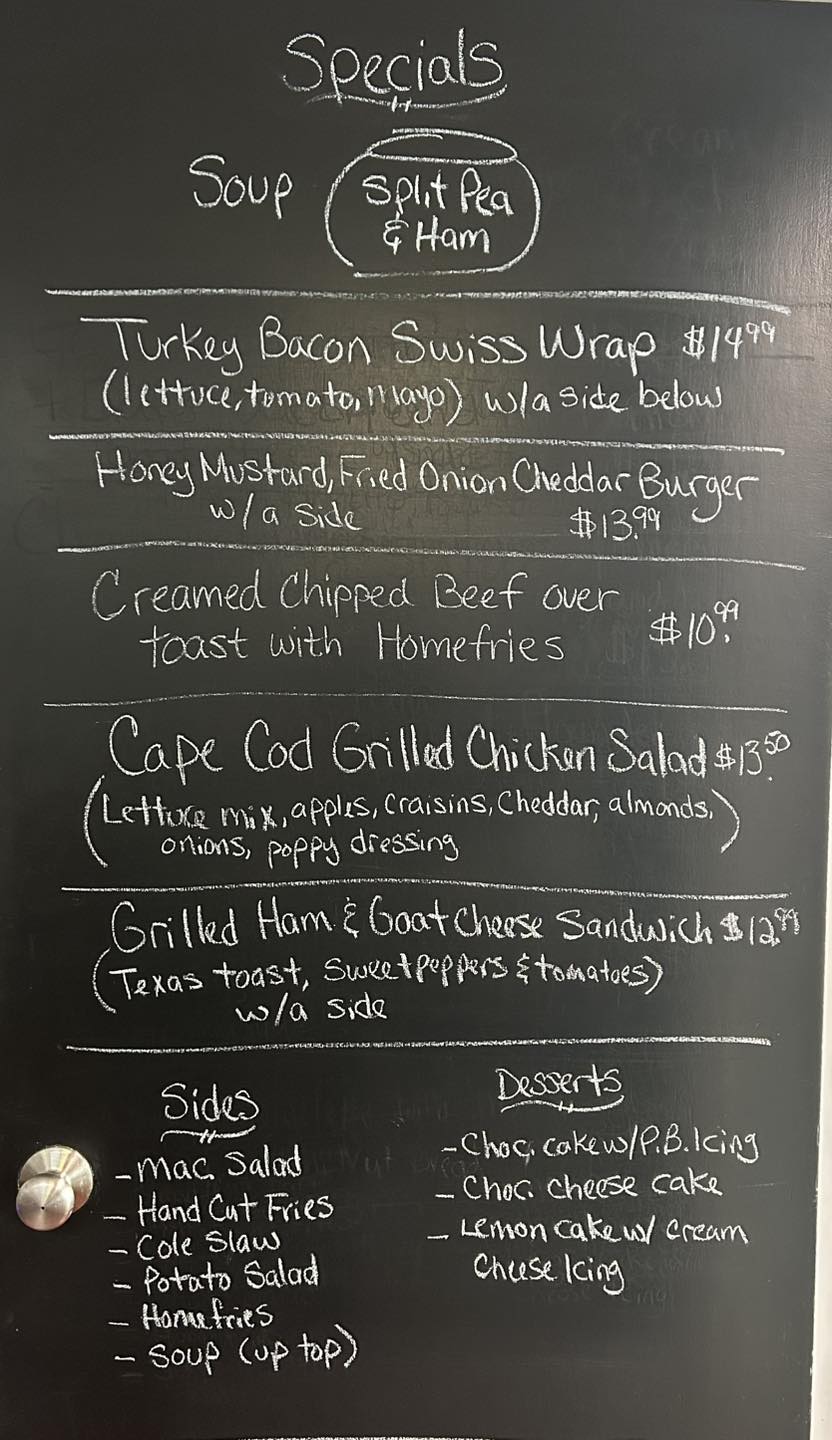 Specials
Soup
Split Pea
& Ham
Turkey Bacon Swiss Wrap $14.99
(lettuce, tomato, mayo) w/a side below
Honey Mustard, Fried Onion Cheddar Burger
w/a side $13.99
Creamed Chipped Beef over
toast with Homefries $10.99
Cape Cod Grilled Chicken Salad $13.50
(Lettuce mix, apples, Craisins, Cheddar, almonds,
onions, poppy dressing)
Grilled Ham & Goat Cheese Sandwich $12.99
(Texas toast, Sweet peppers & tomatoes)
w/a side
Sides
- Mac Salad
- Hand Cut Fries
- Cole Slaw
- Potato Salad
- Homefries
- Soup (up top)
Desserts
- Choc. cake w/P.B. Icing
- Choc. cheese cake
- Lemon cake w/ cream
Cheese Icing